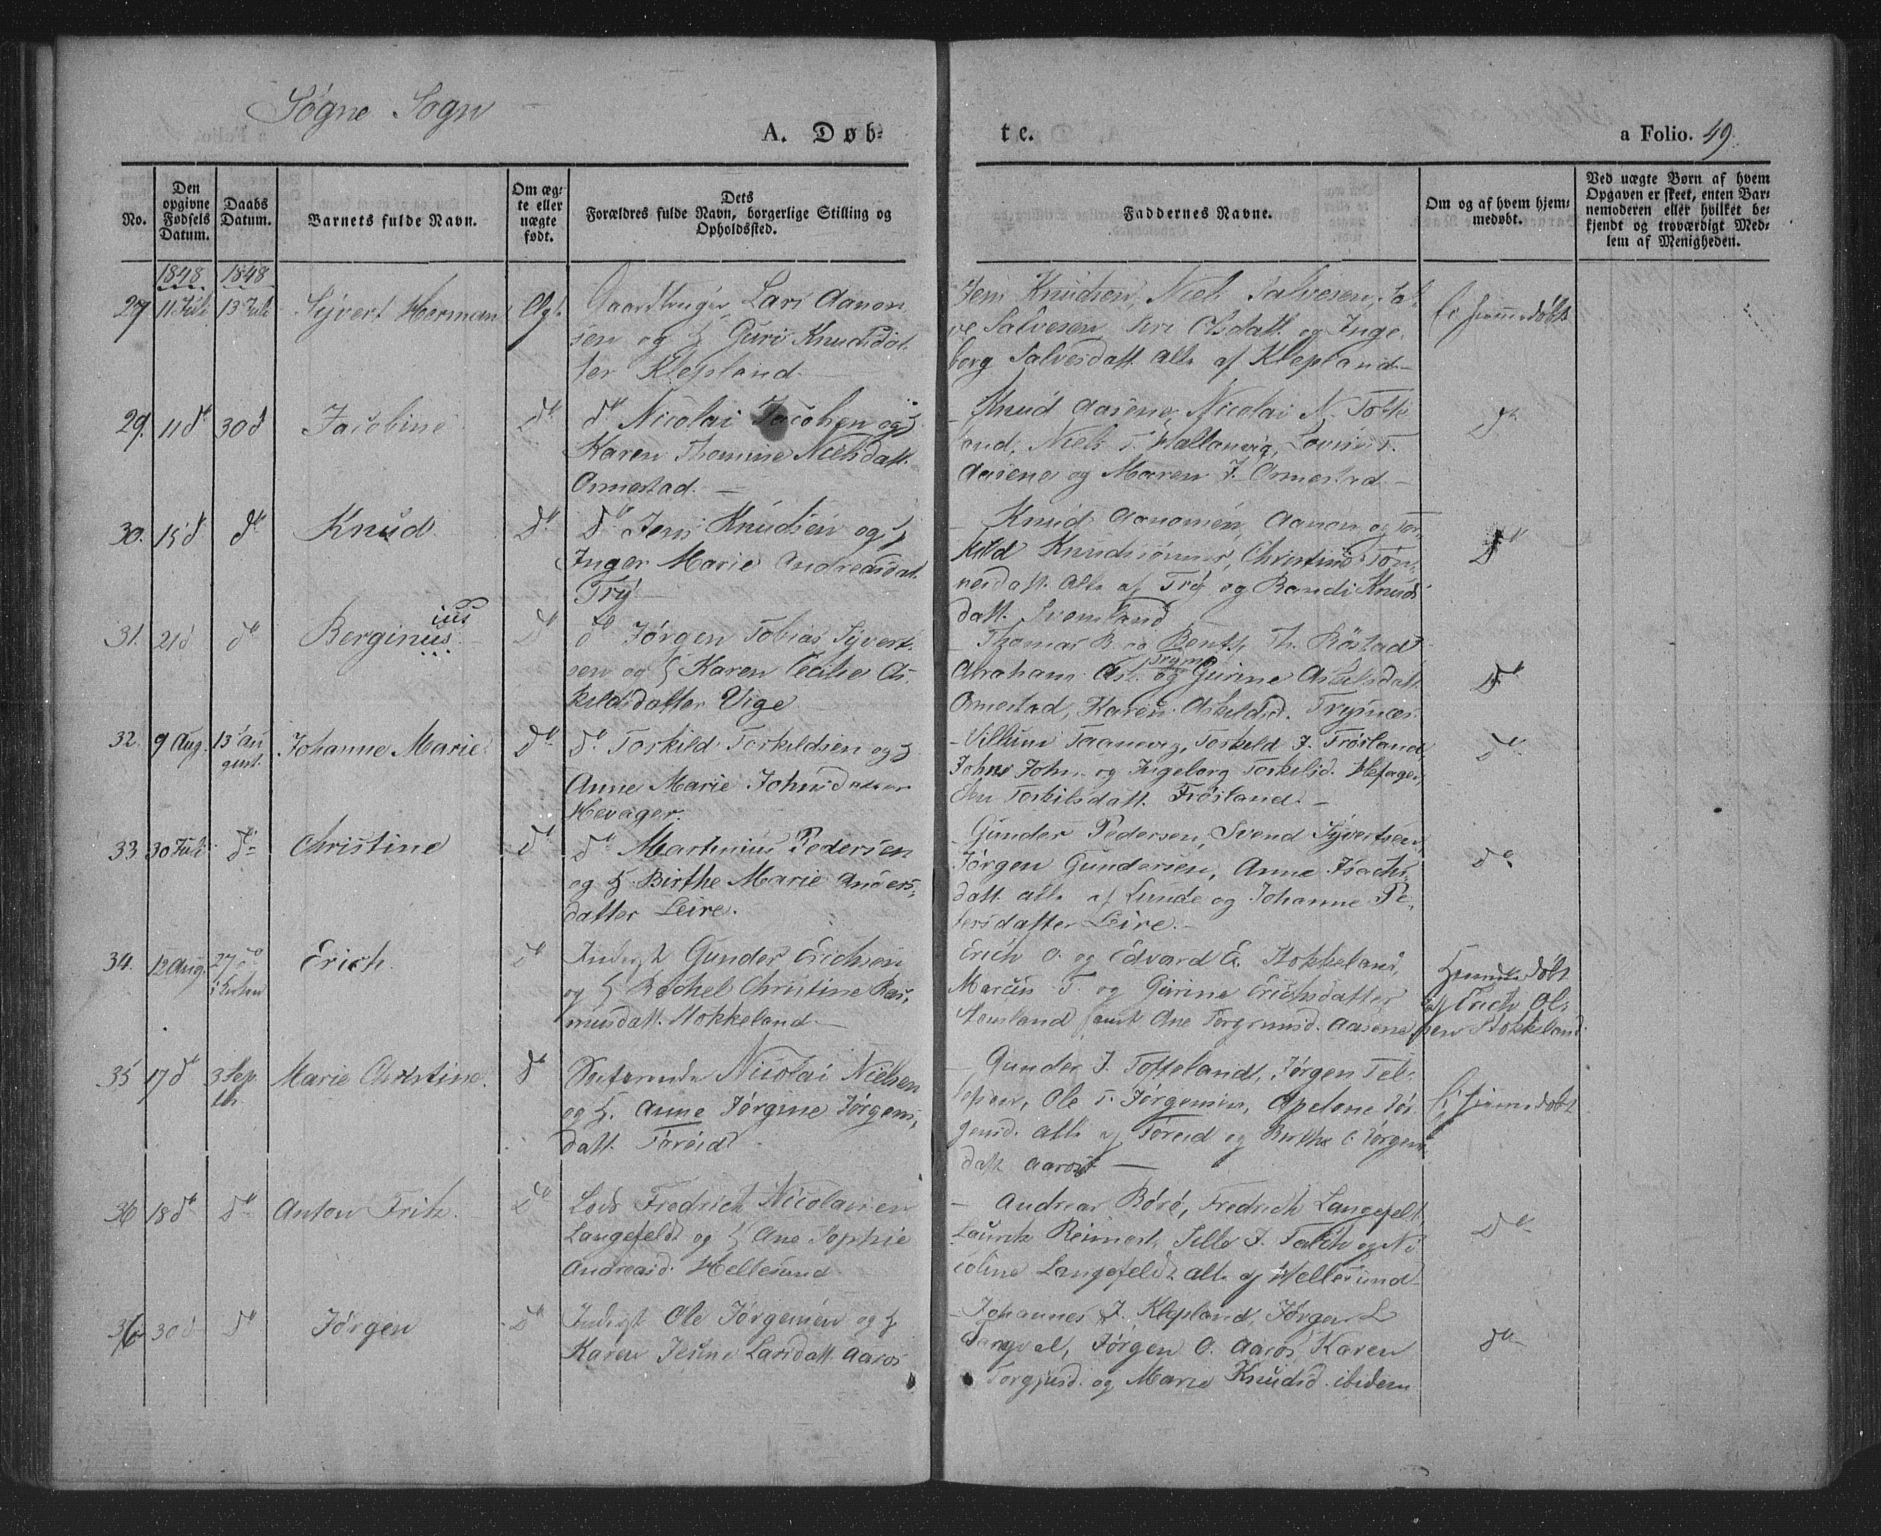 Søgne Sogn
A. Døbte.
a Folio. 49.
No.
Den opgivne Fødsels Datum.
Daabs Datum.
Barnets fulde Navn.
Om ægte eller uægte født.
Dets Forældres fulde Navn, borgerlige Stilling og Opholdssted.
Faddernes Navne.
Om og af hvem hjemmedøbt.
Ved uægte Børn af hvem Opgaven er skeet, enten Barnemoderen eller hvilket bekjendt og troværdigt Medlem af Menigheden.
1848 1848
11 Juli 13 Juli Syvert Herman Ægt.
Gaardbruger Lars Aanon
sen og H Guri Knudsdat
ter Klepland
Jens Knudsen, Niels Salvesen, Sal
ve Salvesen Siri Olsdatt og Inge
borg Salvesdatt alle af Klepland
ei hjemmedøbt
29. 11 d 30 d Jacobine do
do Nicolai Jacobsen og H
Karen Thomine Nielsdatt.
Ormestad.
Knud Aasene, Nicolai N. Totte
land, Niels T. Hallanvig, T.
Aasene og Maren J. Ormestad
do
30. 15 d do Knud do
do Jens Knudsen og H
Inger Marie Andreasdat
Try
Knud Aanonsen, Aanon og Tor
kild Knudsønner, Christine Tøn
nesdatt. alle af Try og Randi Knuds
datt. Svensland
do
31. 21 d do Berginus ius do
do Jørgen Tobias Syvert
sen og H Karen Cecilie As
kildsdatter Vige
Thomas B. og Bent Th. Røstad
Abraham As. og Gurine Askilsdatt
Ormestad, Karen Askildsd. Trysnes
do
32. 9 Aug. 13 Au
gust. Johanne Marie do
do Torkild Torkildsen og H
Anne Marie Johnsdatter
Hevager.
Villum Taanevig, Torkild J. Frøsland
John John. og Ingeborg Torkilsd. Hefager,
Torkilsdatt. Frøsland.
do
33 30 Juli do Christine do
do Martinius Pedersen
og H Birthe Marie Anders
datter Leire.
Gunder Pedersen, Svend Syvertsen
Jørgen Gundersen, Anne Isachs
datt. alle af Lunde og Johanne Pe
tersdatter Leire.
do
34. 12 Aug. 27 do
i Kirken Erich. do
Inderst Gunder Erichsen
og H Rachel Christine Ras
musdatt. Stokkeland
Erich O. og Edvard E. Stokkeland,
Marcus T. og Gurine Erichsdatter
Aamland samt Ane Torgrimsd. Aasene
Hjemmedøbt
af Erich Ol
sen Stokkeland.
35 17 d 3 Sep
tbr. Marie Christine do
Søefarende Nicolai Nielsen
og H. Anne Jørgine Jørgens
datt. Toreid
Gunder J. Totteland, Jørgen
Ole T. Jørgensen, Apelone Jør
gensd. alle af Toreid og Berthe C. Jørgens
datt. Aaros
ei hjemmedøbt
36 18 d do Anton Fritz. do
Lods Fredrich Nicolaisen
Langefeldt og H Ane Sophie
Andreasd. Hellesund
Andreas Børø, Fredrich Langefelt,
Lauritz Reimers, Sille J. Falch og Ni
coline Langefeldt alle af Hellesund
do
36 30 d do Jørgen do
Inderst Ole Jørgensen og H
Karen Larsdatt. Aaros
Johannes J. Klepland, Jørgen L
Jørgen O. Aaros, Karen
Torgjusd. og Marie Knudsd. ibidem
do